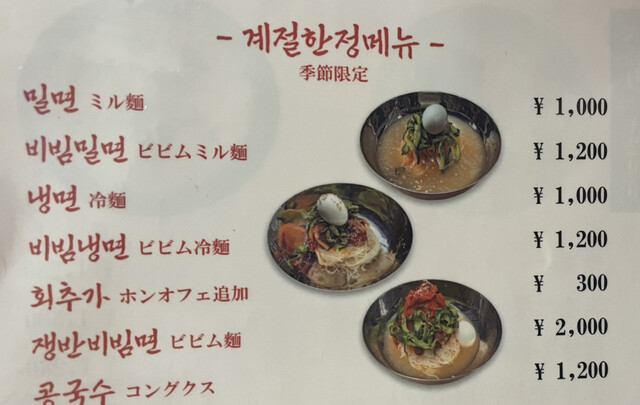 - 계절한정메뉴 -
季節限定
밀면 ミル麺 ¥ 1,000
비빔밀면 ビビムミル麺 ¥ 1,200
냉면 冷麺 ¥ 1,000
비빔냉면 ビビム冷麺 ¥ 1,200
회추가 ホンオフェ追加 ¥ 300
쟁반비빔면 ビビム麺 ¥ 2,000
콩국수 コングクス ¥ 1,200